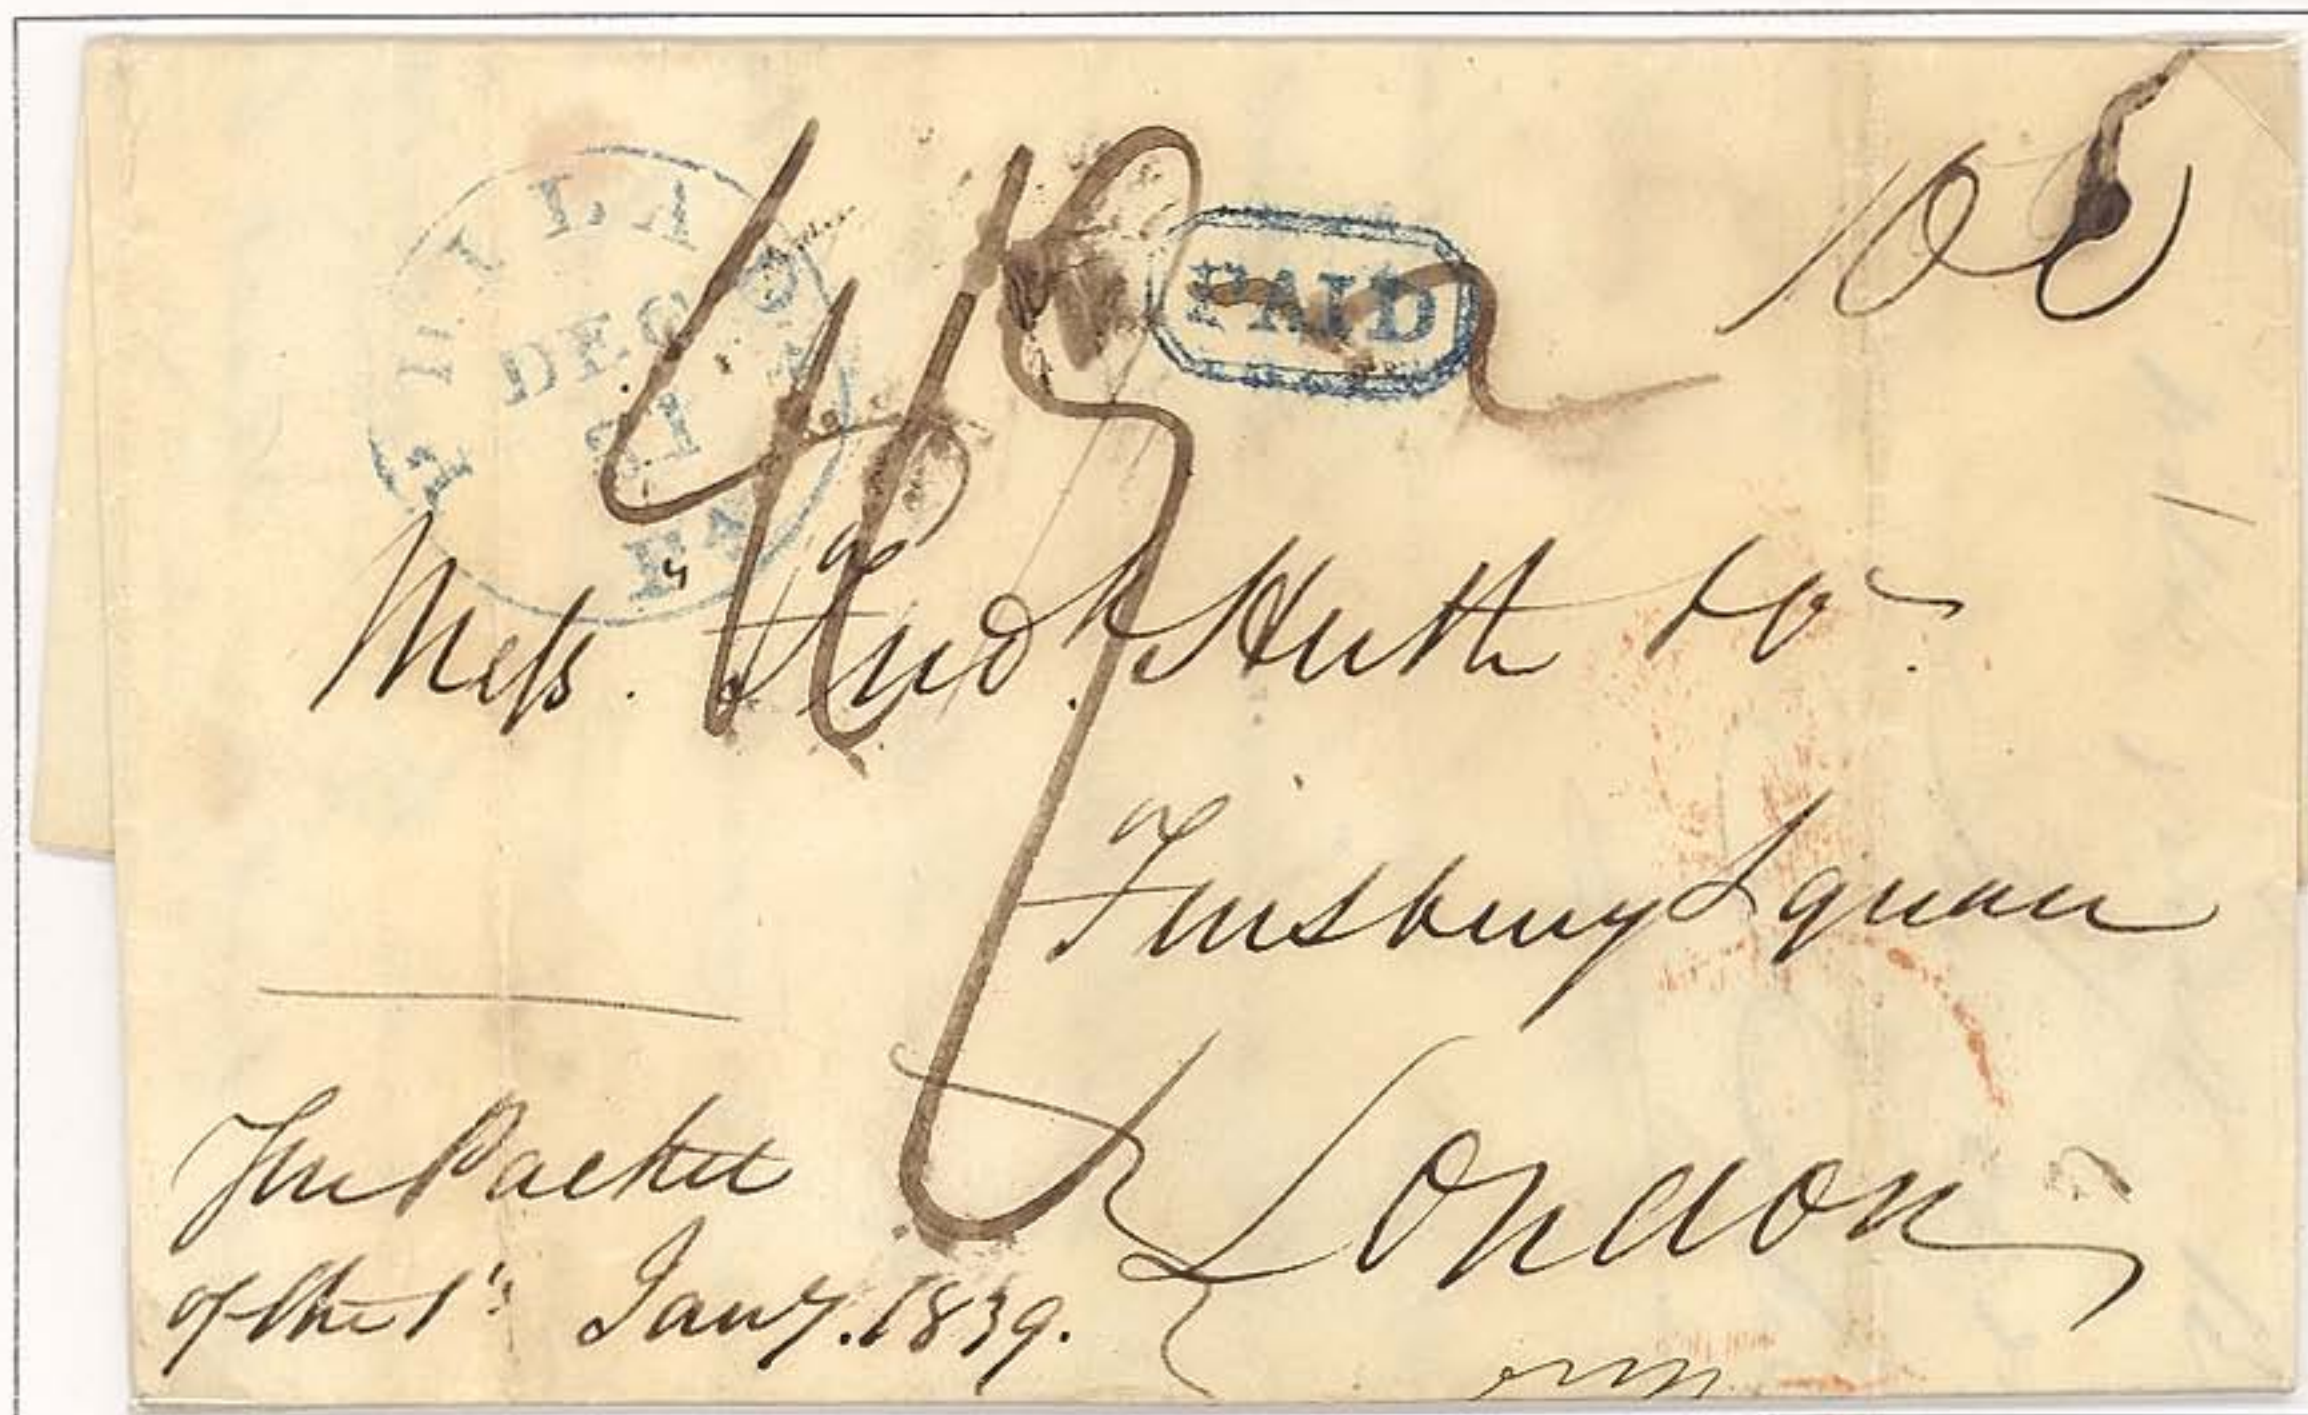 PHILA
DEC
31
Pa
PAID
Mess. Fredk Huth & Co
Finsbury Square
London
Per Packet
of the 1st Jany. 1839.